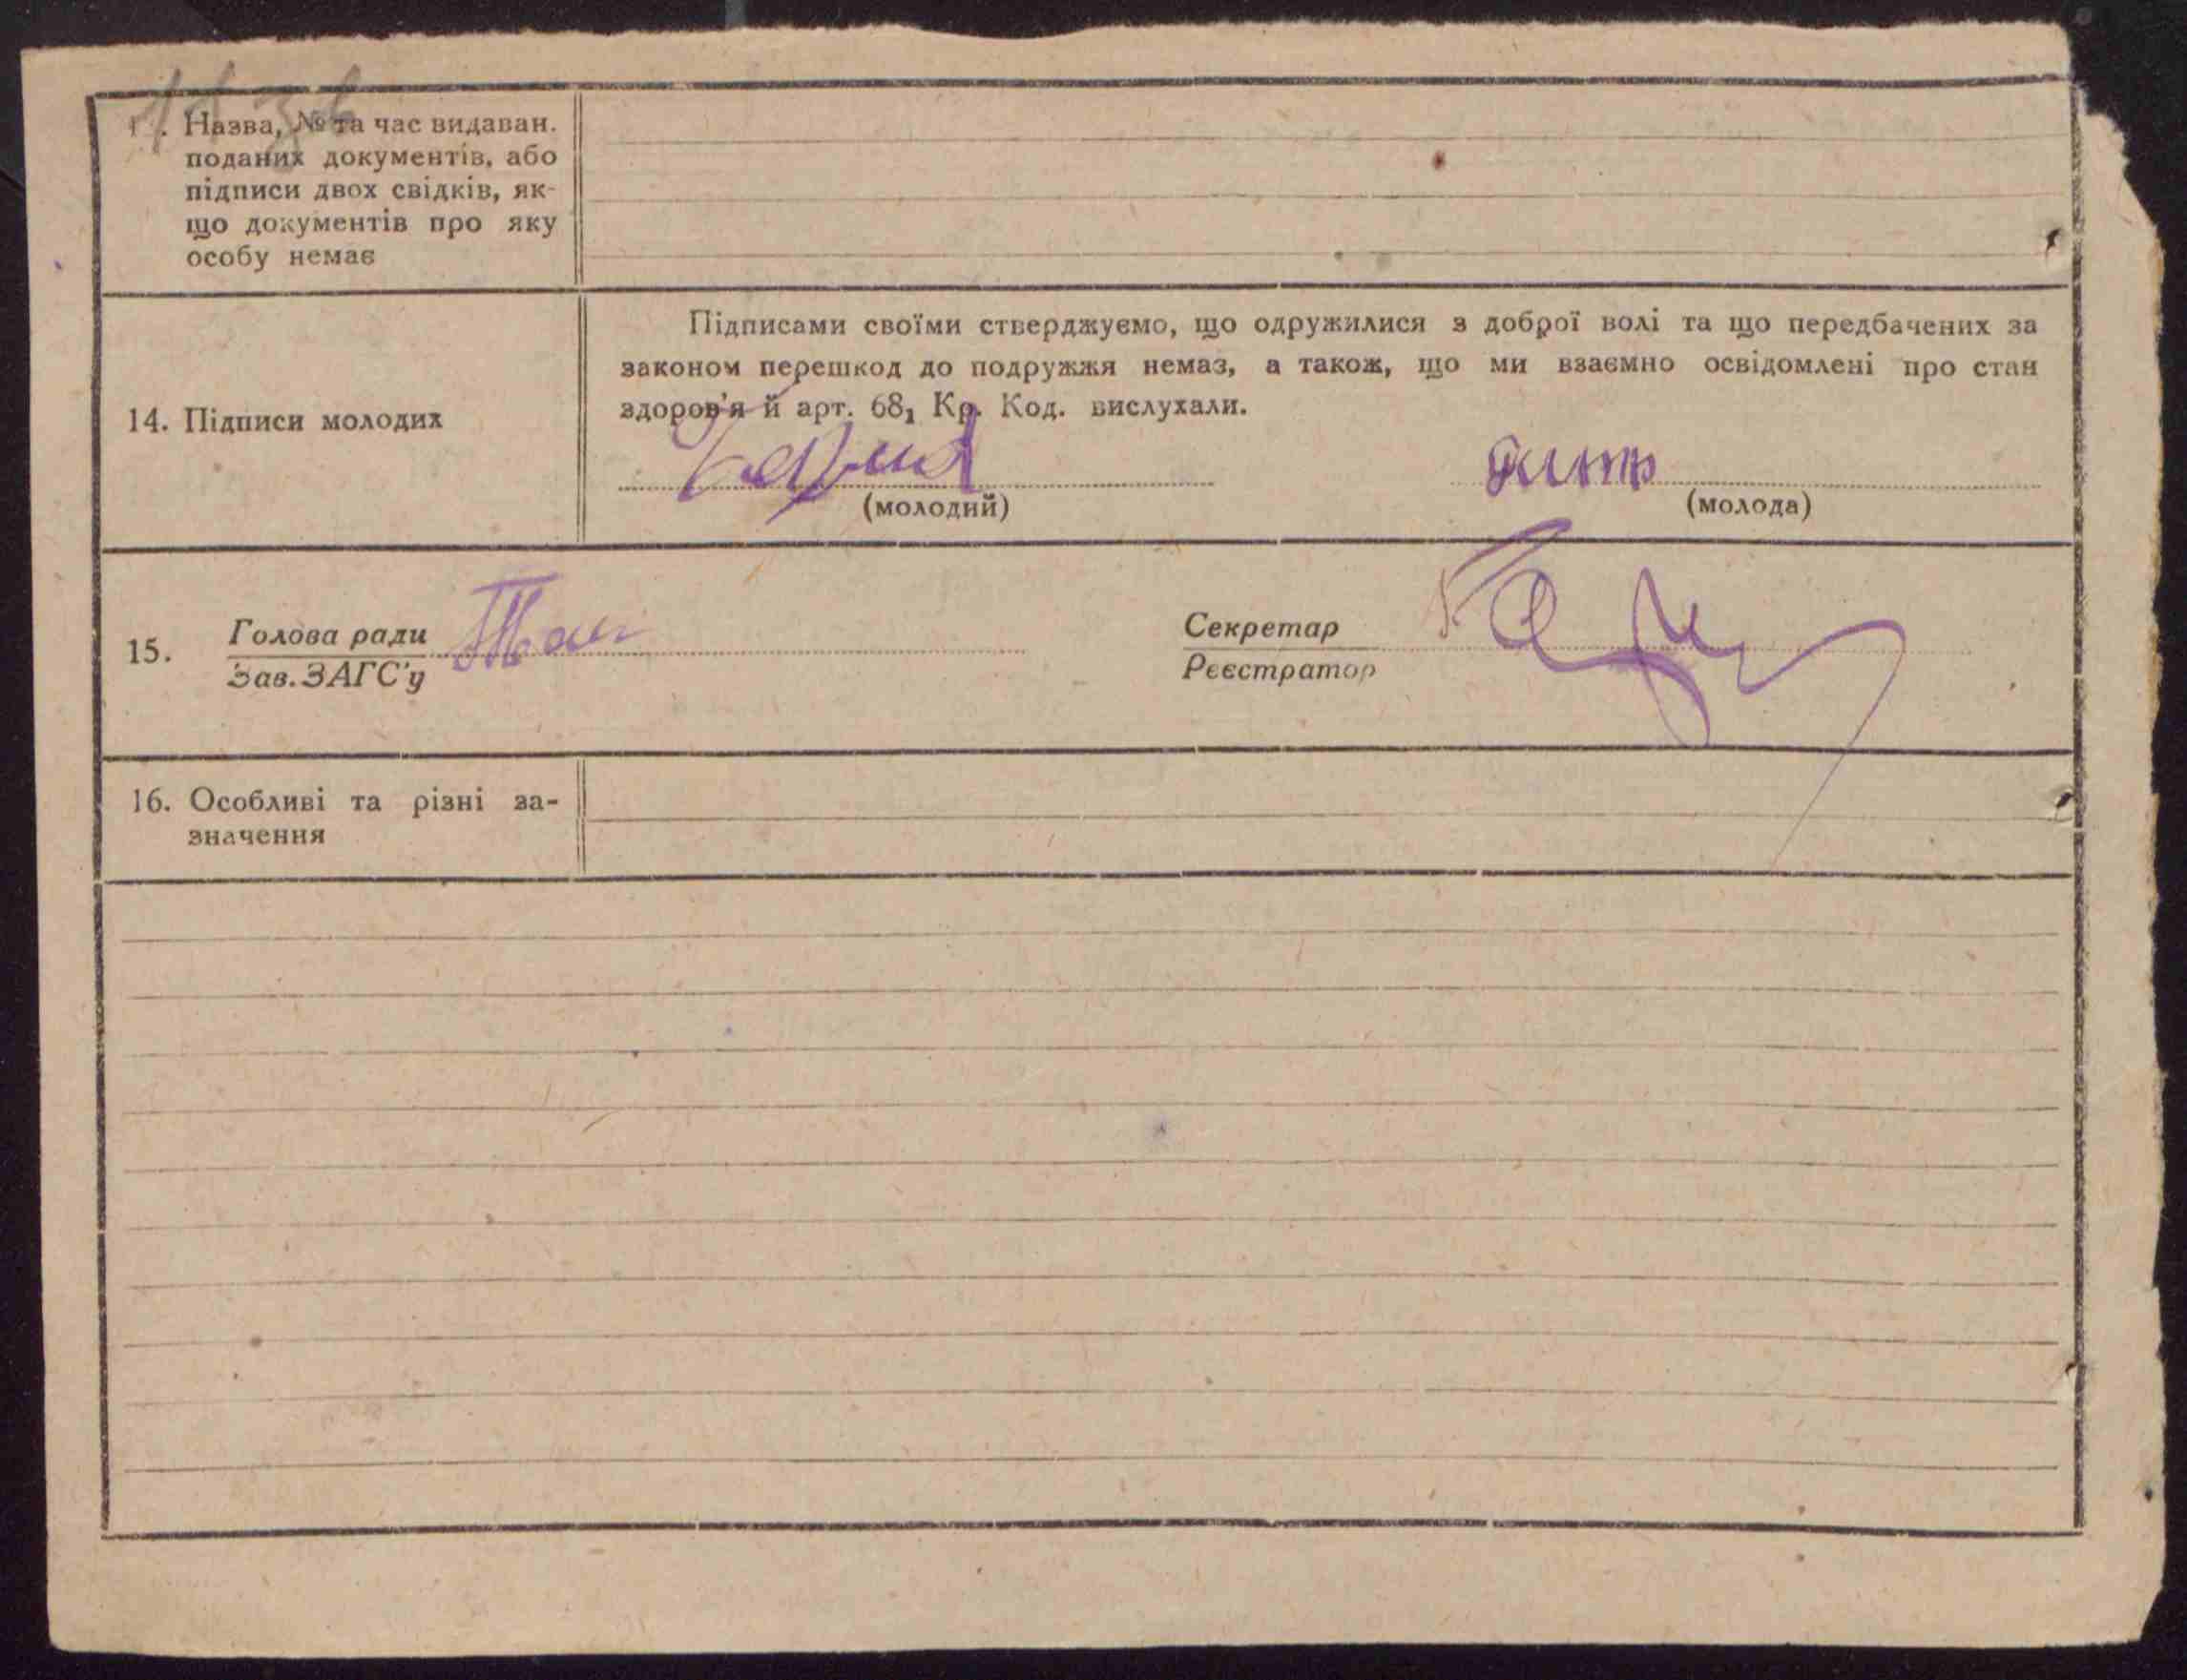 Назва, № та час видаван.
поданих документів, або
підписи двох свідків, як-
що документів про яку
особу немає
Підписами своїми стверджуємо, що одружилися з доброї волі та що передбачених за
законом перешкод до подружжя немаз, а також, що ми взаємно освідомлені про стан
здоров'я й арт. 68₁ Кр. Код. вислухали.
14. Підписи молодих
(молодий) (молода)
15. Голова ради
Зав. ЗАГС'у
Секретар
Реєстратор
16. Особливі та різні за-
значення